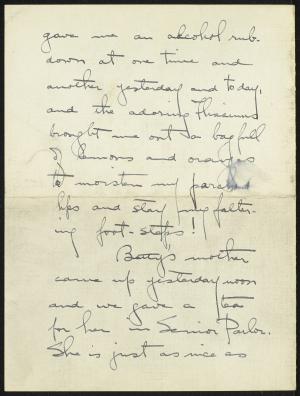 gave me an alcohol rub-
down at one time and
another yesterday and today,
and the adoring
brought me out a bag full
of lemons and oranges
to moisten my parched
lips and stay my falter-
ing foot-steps!
Betty's mother
came up yesterday noon
and we gave a tea
for her in Senior Parlor.
She is just as nice as